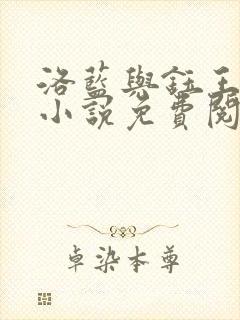 洛藍與鈺王
小說免費閱
卓染本尊